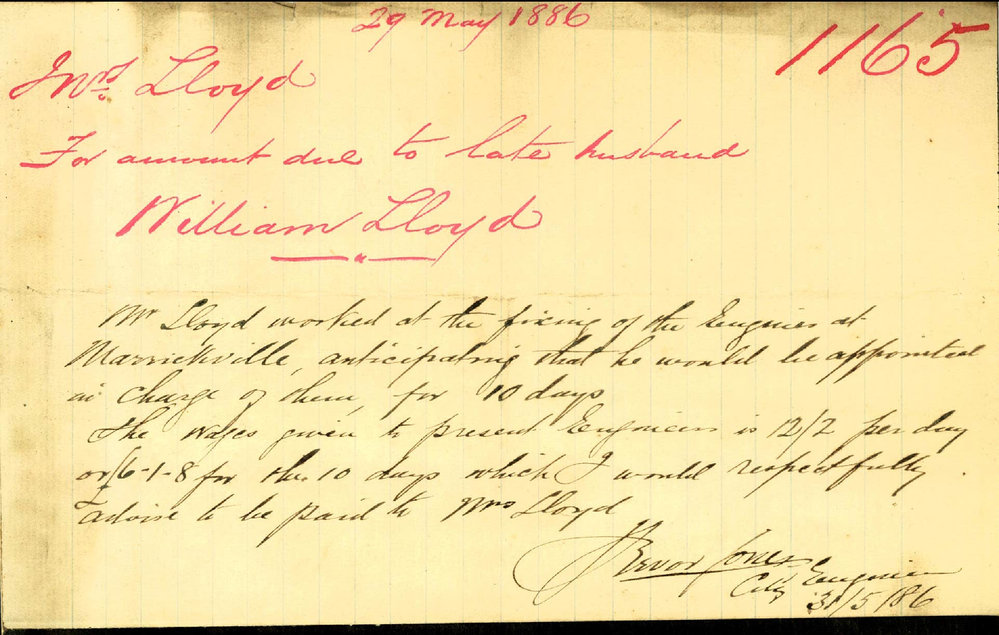 29 May 1886
1165
Mrs Lloyd
For amount due to late husband
William Lloyd
Mr Lloyd worked at the fixing of the Engines at
Marrickville, anticipating that he would be appointed
in charge of them, for 10 days
The wages given to present Engineers is 12/2 per day
or £6-1-8 for the 10 days which I would respectfully
advise to be paid to Mrs Lloyd
Trevor Jones
City Engineer
31/5/86